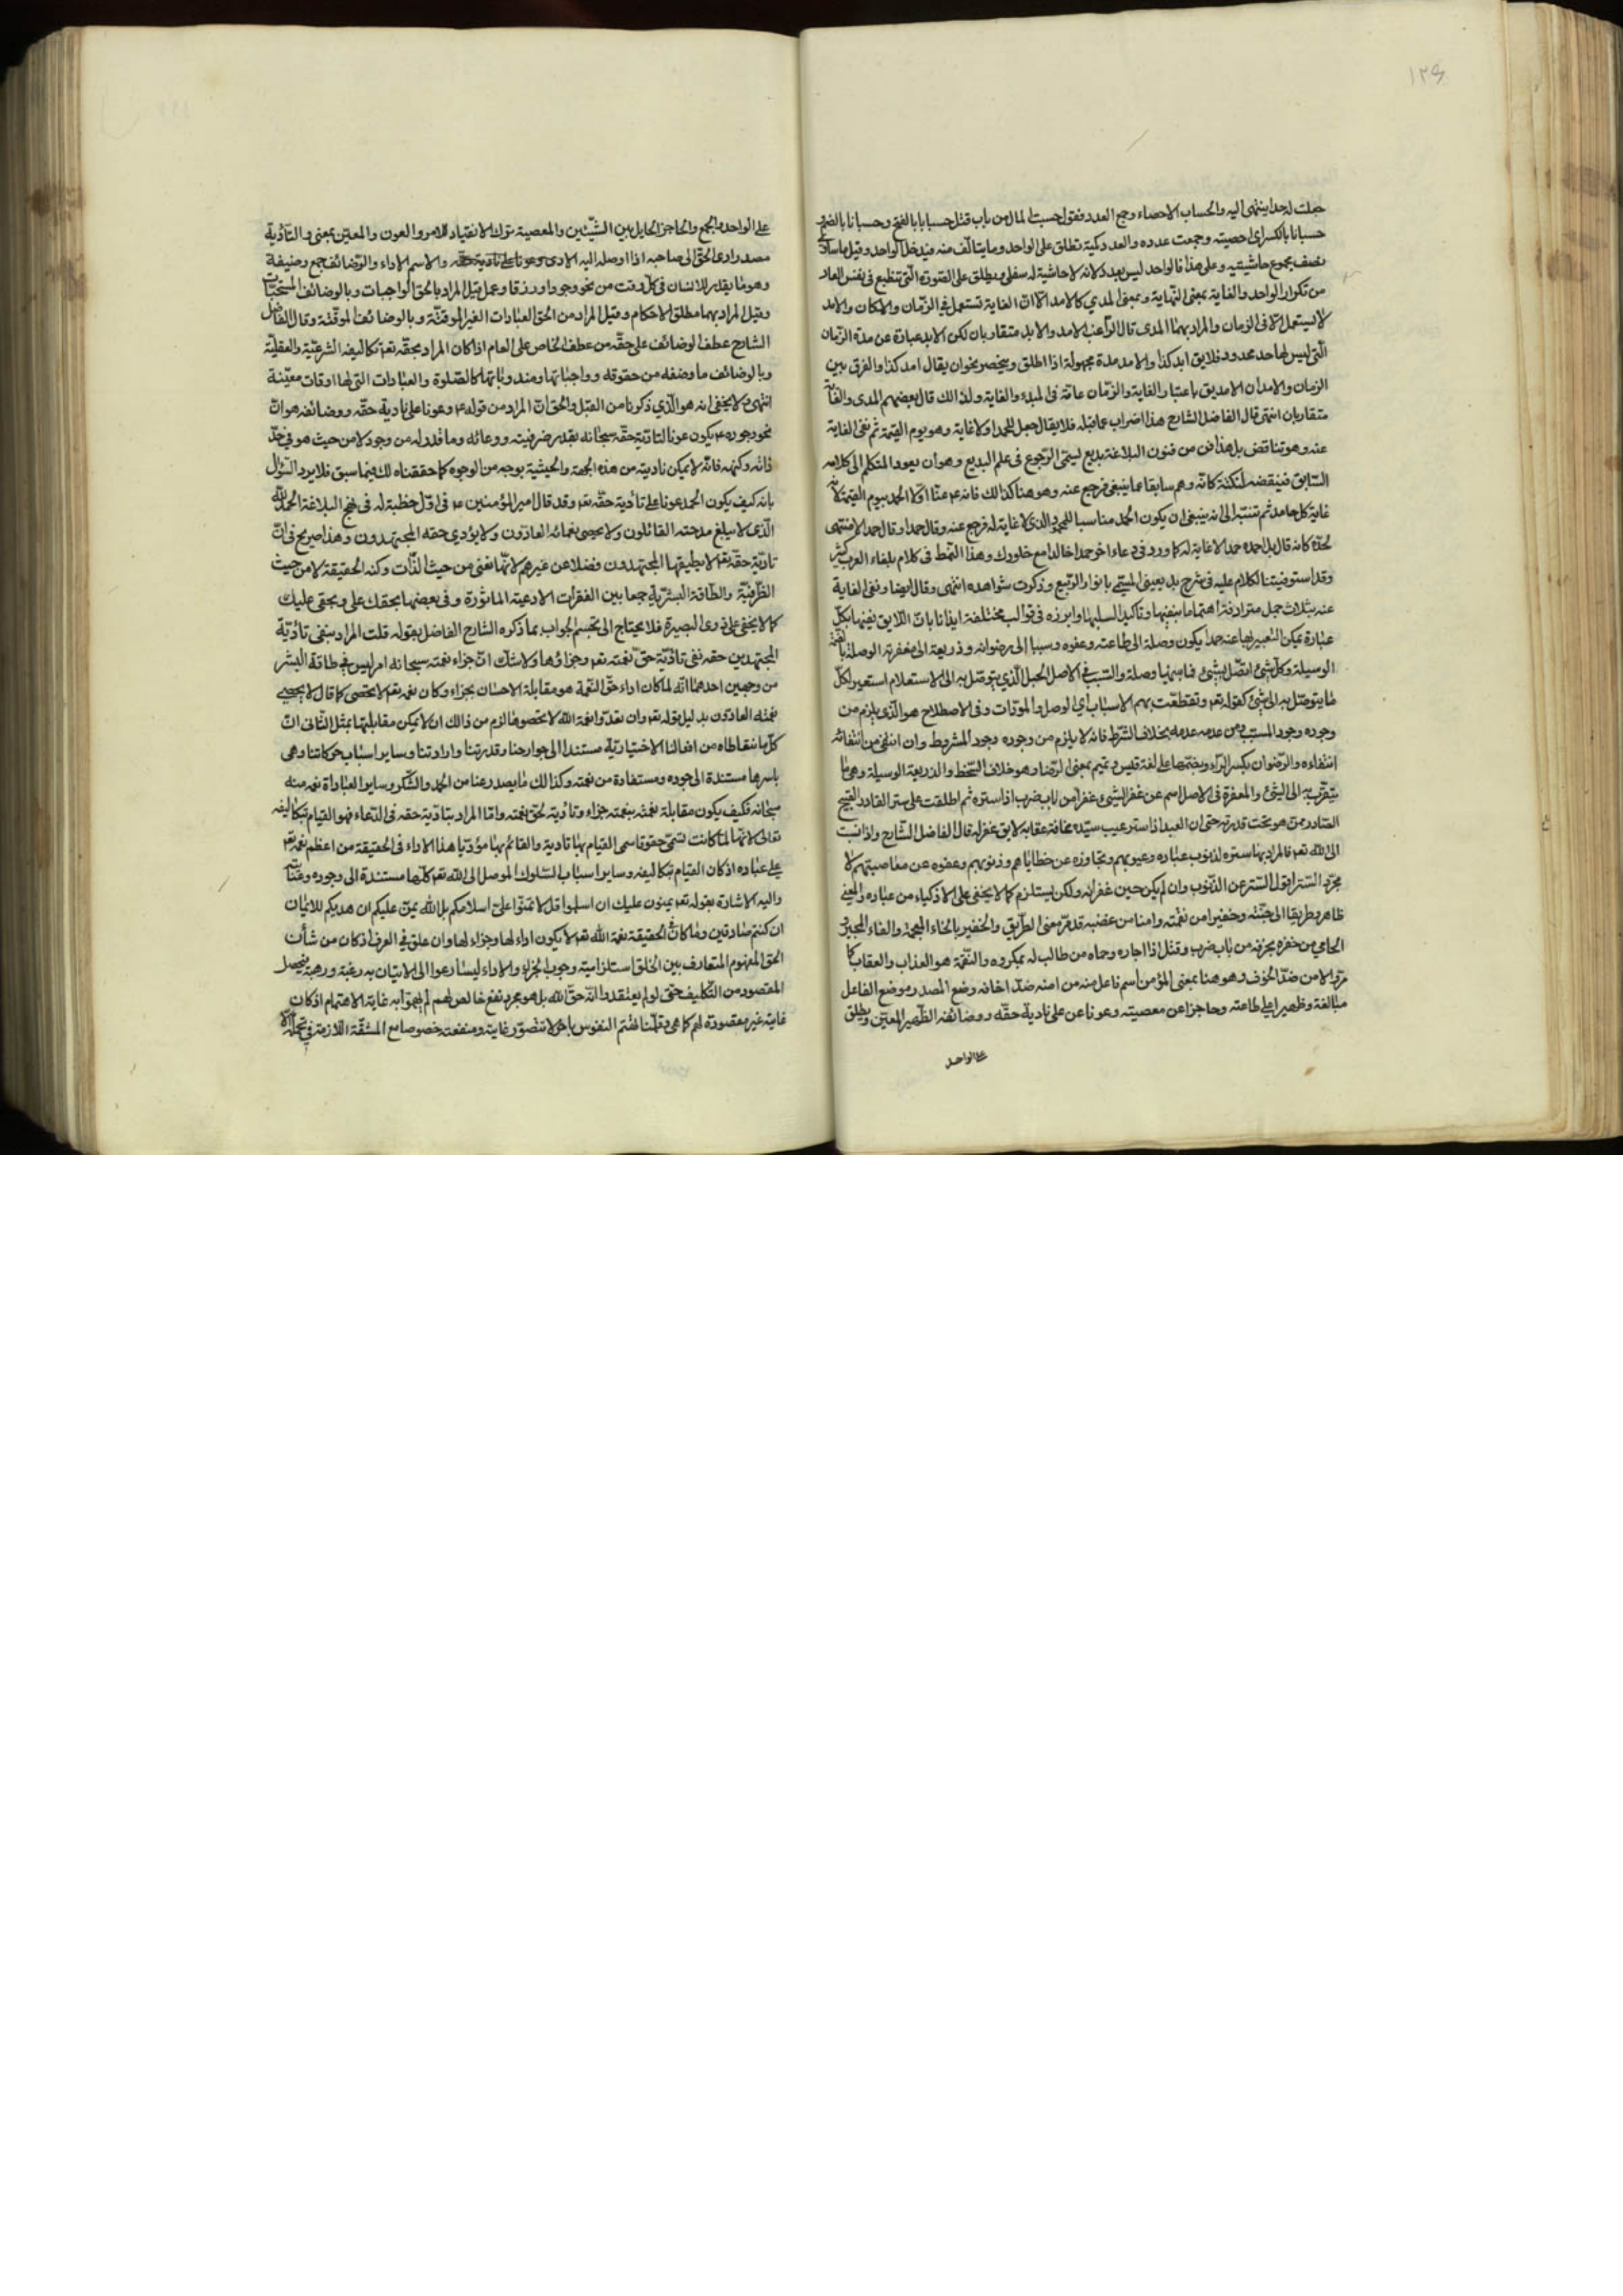 ١٢٤
جعلت له حدا ينتهى اليه والحساب الاحصاء وجمع العدد فتقول حسبت المال من باب قتل حسبا بالفتح وحسبانا بالضم
حسبانا بالكسر اى احصيته وجمعت عدده والعدد كمية تطلق على الواحد وما يتالف منه فيدخل الواحد وقيل ما ساوى
نصف مجموع حاشيتيه وعلى هذا فالواحد ليس بعدد لانه لا حاشية له سفلى ويطلق على الصورة الّتى تنطبع فى نفس العاد
من تكرار الواحد والغاية بمعنى النّهاية وبمعنى المدي كالامد الّا انّ الغاية تستعمل في الزّمان والامكان والامد
لا يستعمل الّا فى الزمان والمراد بهما المدى قال الرّاغب الامد والابد متقاربان لكن الابد عبارة عن مدّة الزّمان
الّتى ليس لها حد محدود فلا يق ابد كذا والامد مدة مجهولة اذا اطلق وينحصر نحو ان يقال امد كذا والفرق بين
الزمان والامد ان الامد يق باعتبار الغاية والزّمان عامّ فى المبدء والغاية ولذالك قال بعضهم المدى والغاية
متقاربان انتهى قال الفاضل الشارح هذا اضراب عما قبله فلا يقال جعل للحمد اولا غاية وهو يوم القيمة ثم نفى الغاية
عنه وهو تناقض بل هذا فن من فنون البلاغة بديع ليسمى الرّجوع فى علم البديع وهو ان يعود المتكلم الى كلامه
السّابق فينقضه لنكتة كانّه وهم سابقا عما ينبغى فرجع عنه وهو هنا كذالك فانه ع غيّا اوّلا الحمد بيوم القيمة لانه
غاية كل حامد ثم تنبّه الى انه ينبغى ان يكون الحمد مناسبا للمحمود الذى لا غاية له فرجع عنه وقال حمدا وقال حمدا لا منتهى
لحدّه كانه قال بل احمده حمدا لا غاية له كما ورد فى دعاء اخر حمدا خالدا مع خلودك وهذا النّمط فى كلام بلغاء العرب كثير
وقد استوفيتنا الكلام عليه فى شرح بديعيتى المسمّى بانوار الرّبيع وذكرت شواهده انتهى وقال ايضا ونفى الغاية
عنه بثلاث جمل مترادفة اهتماما بنفيها وتاكيدا لسلبها وابرزه فى قوالب مختلفة ايذانا بانّ اللّايق نفيها بكلّ
عبارة يمكن التعبير بها عنه حمدا يكون وصلة الى طاعته وعفوه وسببا الى رضوانه وذريعة الى مغفرته الوصلة بالضمّ
الوسيلة وكلّ شئ اتّصل بشئ فما بينهما وصلة والسّبب فى الاصل الحبل الّذي يتوصّل به الى الاستعلام استعير لكلّ
ما يتوصّل به الى شئ كقوله تعم وتقطّعت بهم الاسباب اي الوصل والمودّات وفى الاصطلاح هو الّذى يلزم من
وجوده وجود المسبب ومن عدمه عدمه بخلاف الشّرط فانه لا يلزم من وجوده وجود المشروط وان انتفى من انتفائه
انتفاءه والرّضوان بكسر الرّاء وبضمها على لغة قيس وتميم بمعنى الرّضا وهو خلاف السّخط والذريعة الوسيلة وهى ما
يتقرّب به الى الشئ والمغفرة فى الاصل اسم عن غفر الشئ غفرا من باب ضرب اذا ستره ثم اطلقت على ستر القادر القبيح
الصّادر ممّن هو تحت قدرته حتى ان العبد اذا ستر عيب سيّده مخافة عقابه لا يق غفر له قال الفاضل الشّارح واذا نسبت
الى الله تعم فالمراد بها ستره لذنوب عباده وعيوبهم وتجاوزه عن خطاياهم وذنوبهم وعفوه عن معاصيهم لا
مجرّد السّتر اقول السّتر عن الذّنوب وان لم يكن حين غفرانه ولكن يستلزم كما لا يخفى على الاذكياء من عباده والمعنى
ظاهر وطريقا الى جنّته وخفيرا من نقمته وامنا من غضبه قد مرّ معنى الطّريق والخفير بالخاء المعجمة والفاء المجير و
الحامي من خفره يخفره من باب ضرب وقتل اذا اجاره وحماه من طالب له بمكروه والنّقمة هو العذاب والعقاب كما
مرّ والامن ضدّ الخوف وهو هنا بمعنى المؤمن اسم فاعل منه من امنه ضدّ اخافه وضع المصدر موضع الفاعل
مبالغة وظهيرا على طاعته وحاجزا عن معصيته وعونا على تادية حقّه ووضائفه الظّهير المعين ويطلق
على الواحد
على الواحد والجمع والحاجز الحايل بين الشّيئين والمعصية ترك الانقياد للامر والعون والمعين بمعنى والتّأدية
مصدر ادى الحق الى صاحبه اذا اوصله اليه الادى وعونا على تادية حقّه والاسم الاداء والوضائف جمع وضيفة
وهو ما يقدر للانسان فى كلّ وقت من نحو وجود اورزقا وعمل قيل المراد بالحقّ الواجبات وبالوضائف المستحبّات
وقيل المراد بهما مطلق الاحكام وقيل المراد من الحقّ العبادات الغير الموقتّة وبالوضائف الموقّتة وقال الفاضل
الشارح عطف الوضائف على حقّه من عطف الخاص على العام اذا كان المراد بحقّه تعم تكاليفه الشرعيّة والعقليّة
وبالوضائف ما وضفه من حقوقه وواجباتها ومندوباتها كالصّلوة والعبادات التى لها اوقات معيّنة
انتهى ولا يخفى انه هو الّذي ذكرنا من القبل والحق انّ المراد من قوله ع وعونا على تادية حقّه ووضائفه هو انّ
نحو وجوده ع يكون عونا لتاديّة حقّه سبحانه بقدر ضرفيته ووعائه وما قدر له من وجود لا من حيث هو فى حدّ
ذاته وكنهه فانّه لا يمكن تاديته من هذه الجهة والحيثية بوجه من الوجوه كما حققناه لك فيما سبق فلا يرد السّؤال
بانه كيف يكون الحمد عونا على تأدية حقّه تعم وقد قال امير المؤمنين ع فى اوّل خطبة له فى نهج البلاغة الحمد للّه
الّذى لا يبلغ مدحته القائلون ولا يحصى نعمائه العادّون ولا يؤدي حقه المجتهدون وهذا صريح فى انّ
تاديّة حقّه تعم لا يطيقها المجتهدون فضلا عن غيرهم لانّها نفى من حيث الذّات وكنه الحقيقة لا من حيث
الظّرفيّة والطّاقة البشرّية جمعا بين الفقرات الادعية الماثورة وفى بعضها بحقك على وبحقى عليك
كما لا يخفى على ذوى البصيرة فلا يحتاج الى تجسم الجواب بما ذكره الشارح الفاضل بقوله قلت المراد بنفى تأديّة
المجتهدين حقه نفى تاديّة حقّ نعمته تعم وجزاؤها ولا شكّ انّ جزاء نعمته سبحانه امر ليس فى طاقة البشر
من وجهين احدهما انّه لما كان اداء حقّ النّعمة هو مقابلة الاحسان بجزاء وكان نعمه تعم لا يحصى كما قال لا يحصى
نعمته العادّون بدليل قوله تعم وان تعدّوا نعمة الله لا تحصوها لزم من ذالك ان لا يمكن مقابلتها بمثل الثّانى انّ
كلّ ما نتعاطاه من افعالنا الاختياريّة مستندا الى جوارحنا وقدرتنا وارادتنا وساير اسباب حركاتنا وهى
باسرها مستندة الى جوده ومستفادة من نعمته وكذالك ما يصدر عنا من الحمد والشّكر وساير العباداة نعم منه
سبحانه فكيف يكون مقابلة نعمته بنعمته جزاء وتأدية لحق نعمته وامّا المراد بتأدية حقه فى الدّعاء فهو القيام بتكاليفه
تعالى لانّها لمّا كانت تسمّى حقوقا سمى القيام بها تادية والقائم بها مؤدّيا هذا الاداء فى الحقيقة من اعظم نعمه تعم
على عباده اذ كان القيام بتكاليفه وساير اسباب السّلوك الموصل الى الله تعم كلّها مستندة الى وجوده وعنايته
واليه الاشارة بقوله تعم يمنون عليك ان اسلموا قل لا تمنّوا علىّ اسلامكم بل الله يمنّ عليكم ان هديكم للايمان
ان كنتم صادقين وما كان فى الحقيقة نعمة الله تعم لا يكون اداء لها وجزاء لها وان علق في العرف اذ كان من شأن
الحق المفهوم المتعارف بين الخلق استلزامية وجوب الجزاء والاداء ليسارعوا الى الاتيان به رغبة ورهبة فيحصل
المقصود من التّكليف حتى لو لم يعتقدوا انّه حقّ الله بل هو مجرد نفع خالص لهم لم يهتموا به غاية الاهتمام اذ كان
غايته غير مقصودة لهم كما هى وقلّما تهتم النفوس بامر لا تتصوّر غايته ومنفعته خصوصا مع المشقّة اللّازمة فى تحمّله الّا